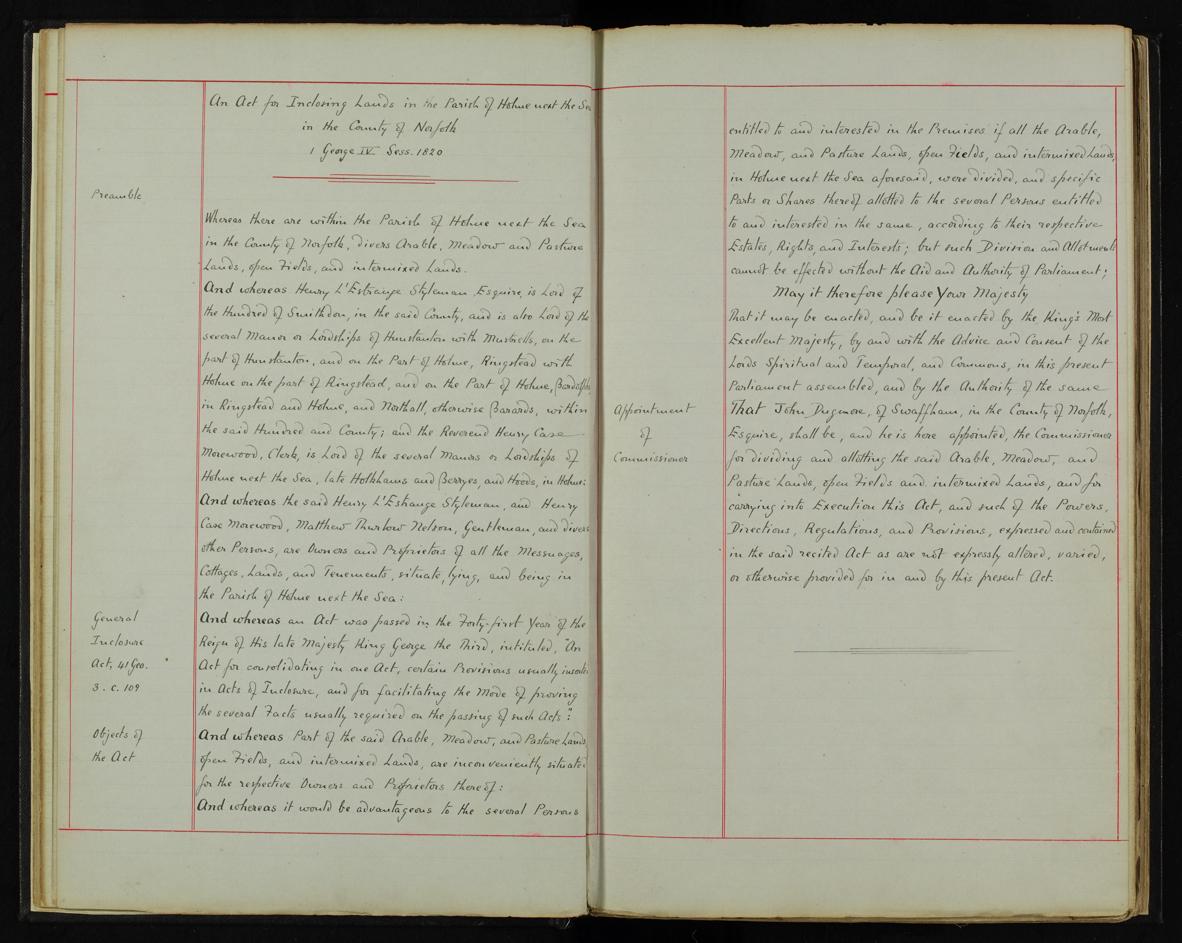 An Act for Inclosing Lands in the Parish of Holme next the Sea
in the County of Norfolk
1 George IV Sess. 1820
Preamble
Whereas there are within the Parish of Holme next the Sea
in the County of Norfolk, divers Arable, Meadow and Pasture
Lands, open Fields, and intermixed Lands.
And whereas Henry L'Estrange Styleman Esquire, is Lord of
the Hundred of Smithdon, in the said County, and is also Lord of the
several Manor or Lordships of Hunstanton with Mustrells, on the
part of Hunstanton, and on the Part of Holme, Ringstead with
Holme on the part of Ringstead, and on the Part of Holme, Bardolphs
in Ringstead and Holme, and Northall, otherwise Barards, within
the said Hundred and County; and the Reverend Henry Case
Morewood, Clerk, is Lord of the several Manors or Lordships of
Holme next the Sea, late Holkhams and Berryes, and Hoods, in Holme:
And whereas the said Henry L'Estrange Styleman, and Henry
Case Morewood, Matthew Thurlow Nelson, Gentleman, and divers
other Persons, are Owners and Proprietors of all the Messuages,
Cottages, Lands, and Tenements, situate, lying, and being in
the Parish of Holme next the Sea:
General
Inclosure
Act, 41 Geo.
3. c. 109
And whereas an Act was passed in the Forty-first Year of the
Reign of His late Majesty King George the Third, intituled, "An
Act for consolidating in one Act, certain Provisions usually inserted
in Acts of Inclosure, and for facilitating the Mode of proving
the several Facts usually required on the passing of such Acts":
Objects of
the Act
And whereas Part of the said Arable, Meadow, and Pasture Lands
open Fields, and intermixed Lands, are inconveniently situated
for the respective Owners and Proprietors thereof:
And whereas it would be advantageous to the several Persons
entitled to and interested in the Premises if all the Arable,
Meadow, and Pasture Lands, open Fields, and intermixed Lands,
in Holme next the Sea aforesaid, were divided, and specific
Parts or Shares thereof allotted to the several Persons entitled
to and interested in the same, according to their respective
Estates, Rights, and Interests; but such Division and Allotments
cannot be effected without the Aid and Authority of Parliament;
May it therefore please Your Majesty
That it may be enacted, and be it enacted by the King's Most
Excellent Majesty, by and with the Advice and Consent of the
Lords Spiritual and Temporal, and Commons, in this present
Parliament assembled, and by the Authority of the same
Appointment
of
Commissioner
That John Dugmore, of Swaffham, in the County of Norfolk,
Esquire, shall be, and he is here appointed, the Commissioner
for dividing and allotting the said Arable, Meadow, and
Pasture Lands, open Fields and intermixed Lands, and for
carrying into Execution this Act, and such of the Powers,
Directions, Regulations, and Provisions, expressed and contained
in the said recited Act as are not expressly altered, varied,
or otherwise provided for in and by this present Act.